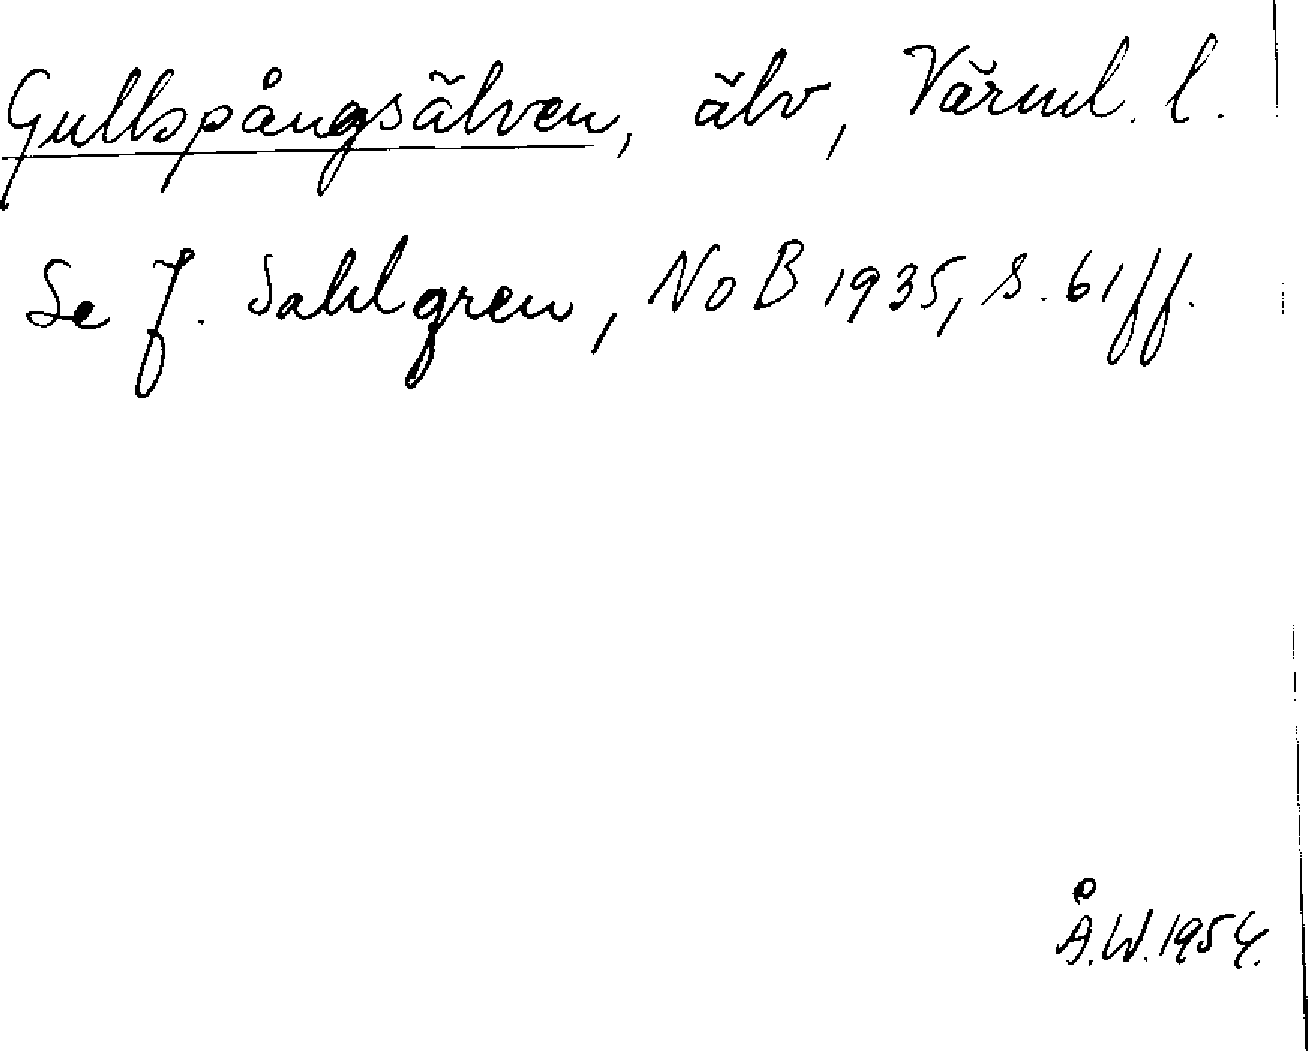 Gullspångsälven, älv, Värml. l.
Se J. Sahlgren, NoB 1935, s. 61 ff.
Å.W. 1954.